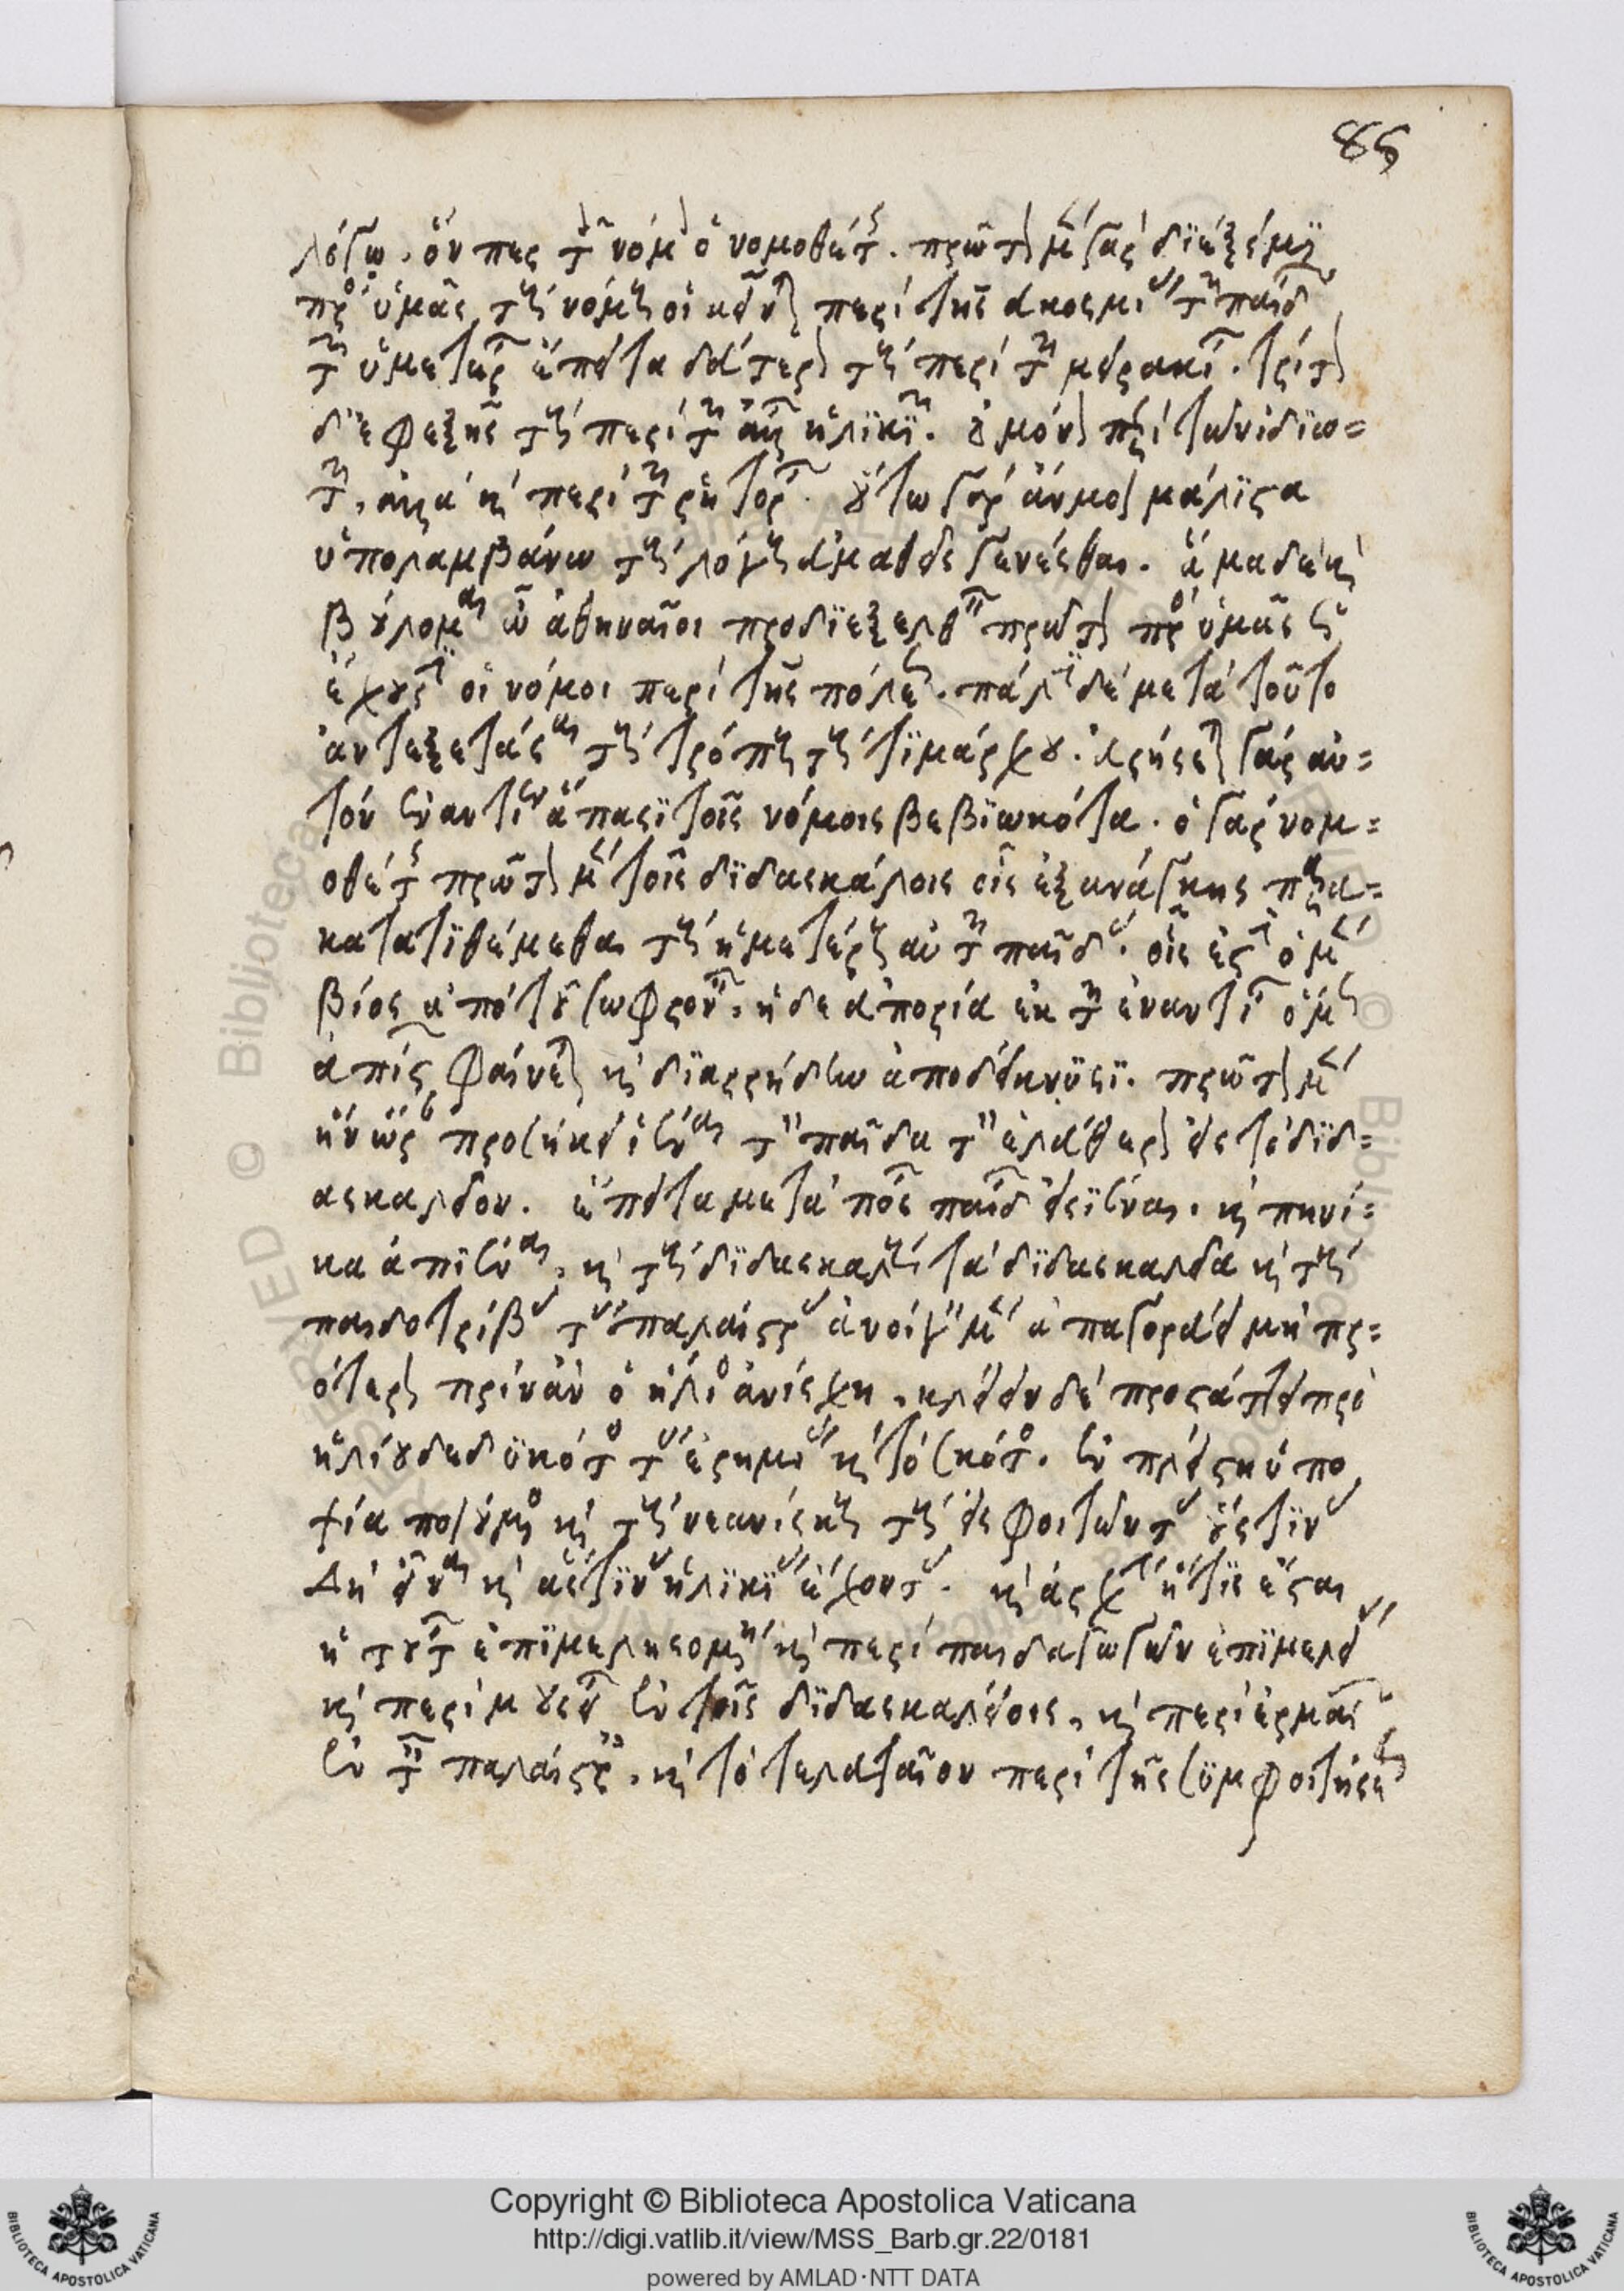 λόγω. ὅνπερ τὸν νόμον ὁ νομοθέτης. πρῶτον μὲν γὰρ διέξειμϊ
πρὸς ὑμᾶς τοὺς νόμους οἳ κεῖνται περὶ τῆς εὐκοσμίας τῶν παίδων
τῶν ὑμετέρων ἔπειτα δεύτερον τοὺς περὶ τῶν μειρακίων. τρίτον
δ' ἐφεξῆς τοὺς περὶ τῶν ἄλλων ἡλϊκϊῶν. οὐ μόνον περὶ τῶν ἰδϊω=
τῶν, ἀλλὰ καὶ περὶ τῶν ῥητόρων. οὕτω γὰρ ἄν μοι μάλϊστα
ὑπολαμβάνω τοὺς λόγους εὐμαθεῖς γενέσθαι. ἅμα δὲ καὶ
βούλομαι ὦ ἀθηναῖοι προδϊεξελθεῖν πρῶτον πρὸς ὑμᾶς ὡς
ἔχουσιν οἱ νόμοι περὶ τῆς πόλεως. πάλϊν δὲ μετὰ τοῦτο
ἀντεξετάσαι τοὺς τρόπους τοὺς τϊμάρχου. εὑρήσετε γὰρ αὐ=
τὸν ἐναντίως ἅπασϊ τοῖς νόμοις βεβϊωκότα. ὁ γὰρ νομ=
οθέτης πρῶτον μὲν τοῖς δϊδασκάλοις οἷς ἐξ ἀνάγκης παρα=
κατατϊθέμεθα τοὺς ἡμετέρους αὐτῶν παῖδας. οἷς ἐστιν ὁ μὲν
βίος ἀπὸ τοῦ σωφρονεῖν. ἡ δὲ ἀπορία ἐκ τῶν ἐναντίων ὅμως
ἀπιστῶν φαίνεται καὶ δϊαρρήδην ἀποδείκνϋσϊ. πρῶτον μὲν
ἣν ὥραν προσήκει ἰέναι τὸν παῖδα τὸν ἐλεύθερον εἰς τὸ δϊδ=
ασκαλεῖον. ἔπειτα μετὰ πόσων παίδων εἰσϊέναι. καὶ πηνί=
κα ἀπϊέναι, καὶ τοὺς δϊδασκάλους τὰ δϊδασκαλεῖα καὶ τοὺς
παιδοτρίβας τὰς παλαίστρας ἀνοίγειν μὲν ἀπαγορεύει μὴ πρ=
ότερον πρὶν ἂν ὁ ἥλιος ἀνίσχη, κλείειν δὲ προστάττει πρὸ
ἡλίου δεδϋκότος τὰς ἐρημίας καὶ τὸ σκότος. ἐν πλείστη ὑπο
ψία ποιούμενος καὶ τοὺς νεανίσκους τοὺς εἰσφοιτῶντας οὕστϊνας
δεῖ εἶναι καὶ ἅστϊνας ἡλϊκϊας ἔχοντας. καὶ ἀρχὴν ἥτϊς ἔσται
ἡ τούτων ἐπϊμελησομένη καὶ περὶ παιδαγωγῶν ἐπϊμελείας
καὶ περὶ μουσείων ἐν τοῖς δϊδασκαλείοις, καὶ περὶ ἑρμαίων
ἐν ταῖς παλαίστραις, καὶ τὸ τελευταῖον περὶ τῆς σϋμφοιτήσεως